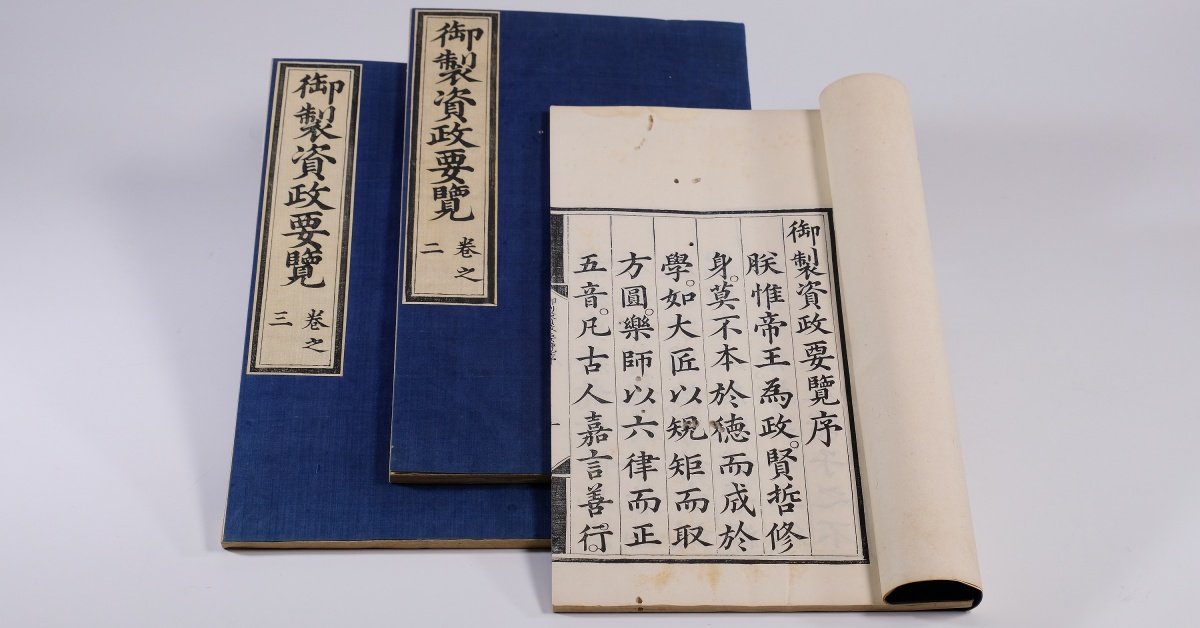 御製資政要覽
卷之
三
御製資政要覽
卷之
二
御製資政要覽序
朕惟帝王為政。賢哲修
身。莫不本於徳而成於
學。如大匠以規矩而取
方圓。樂師以六律而正
五音。凡古人嘉言善行。